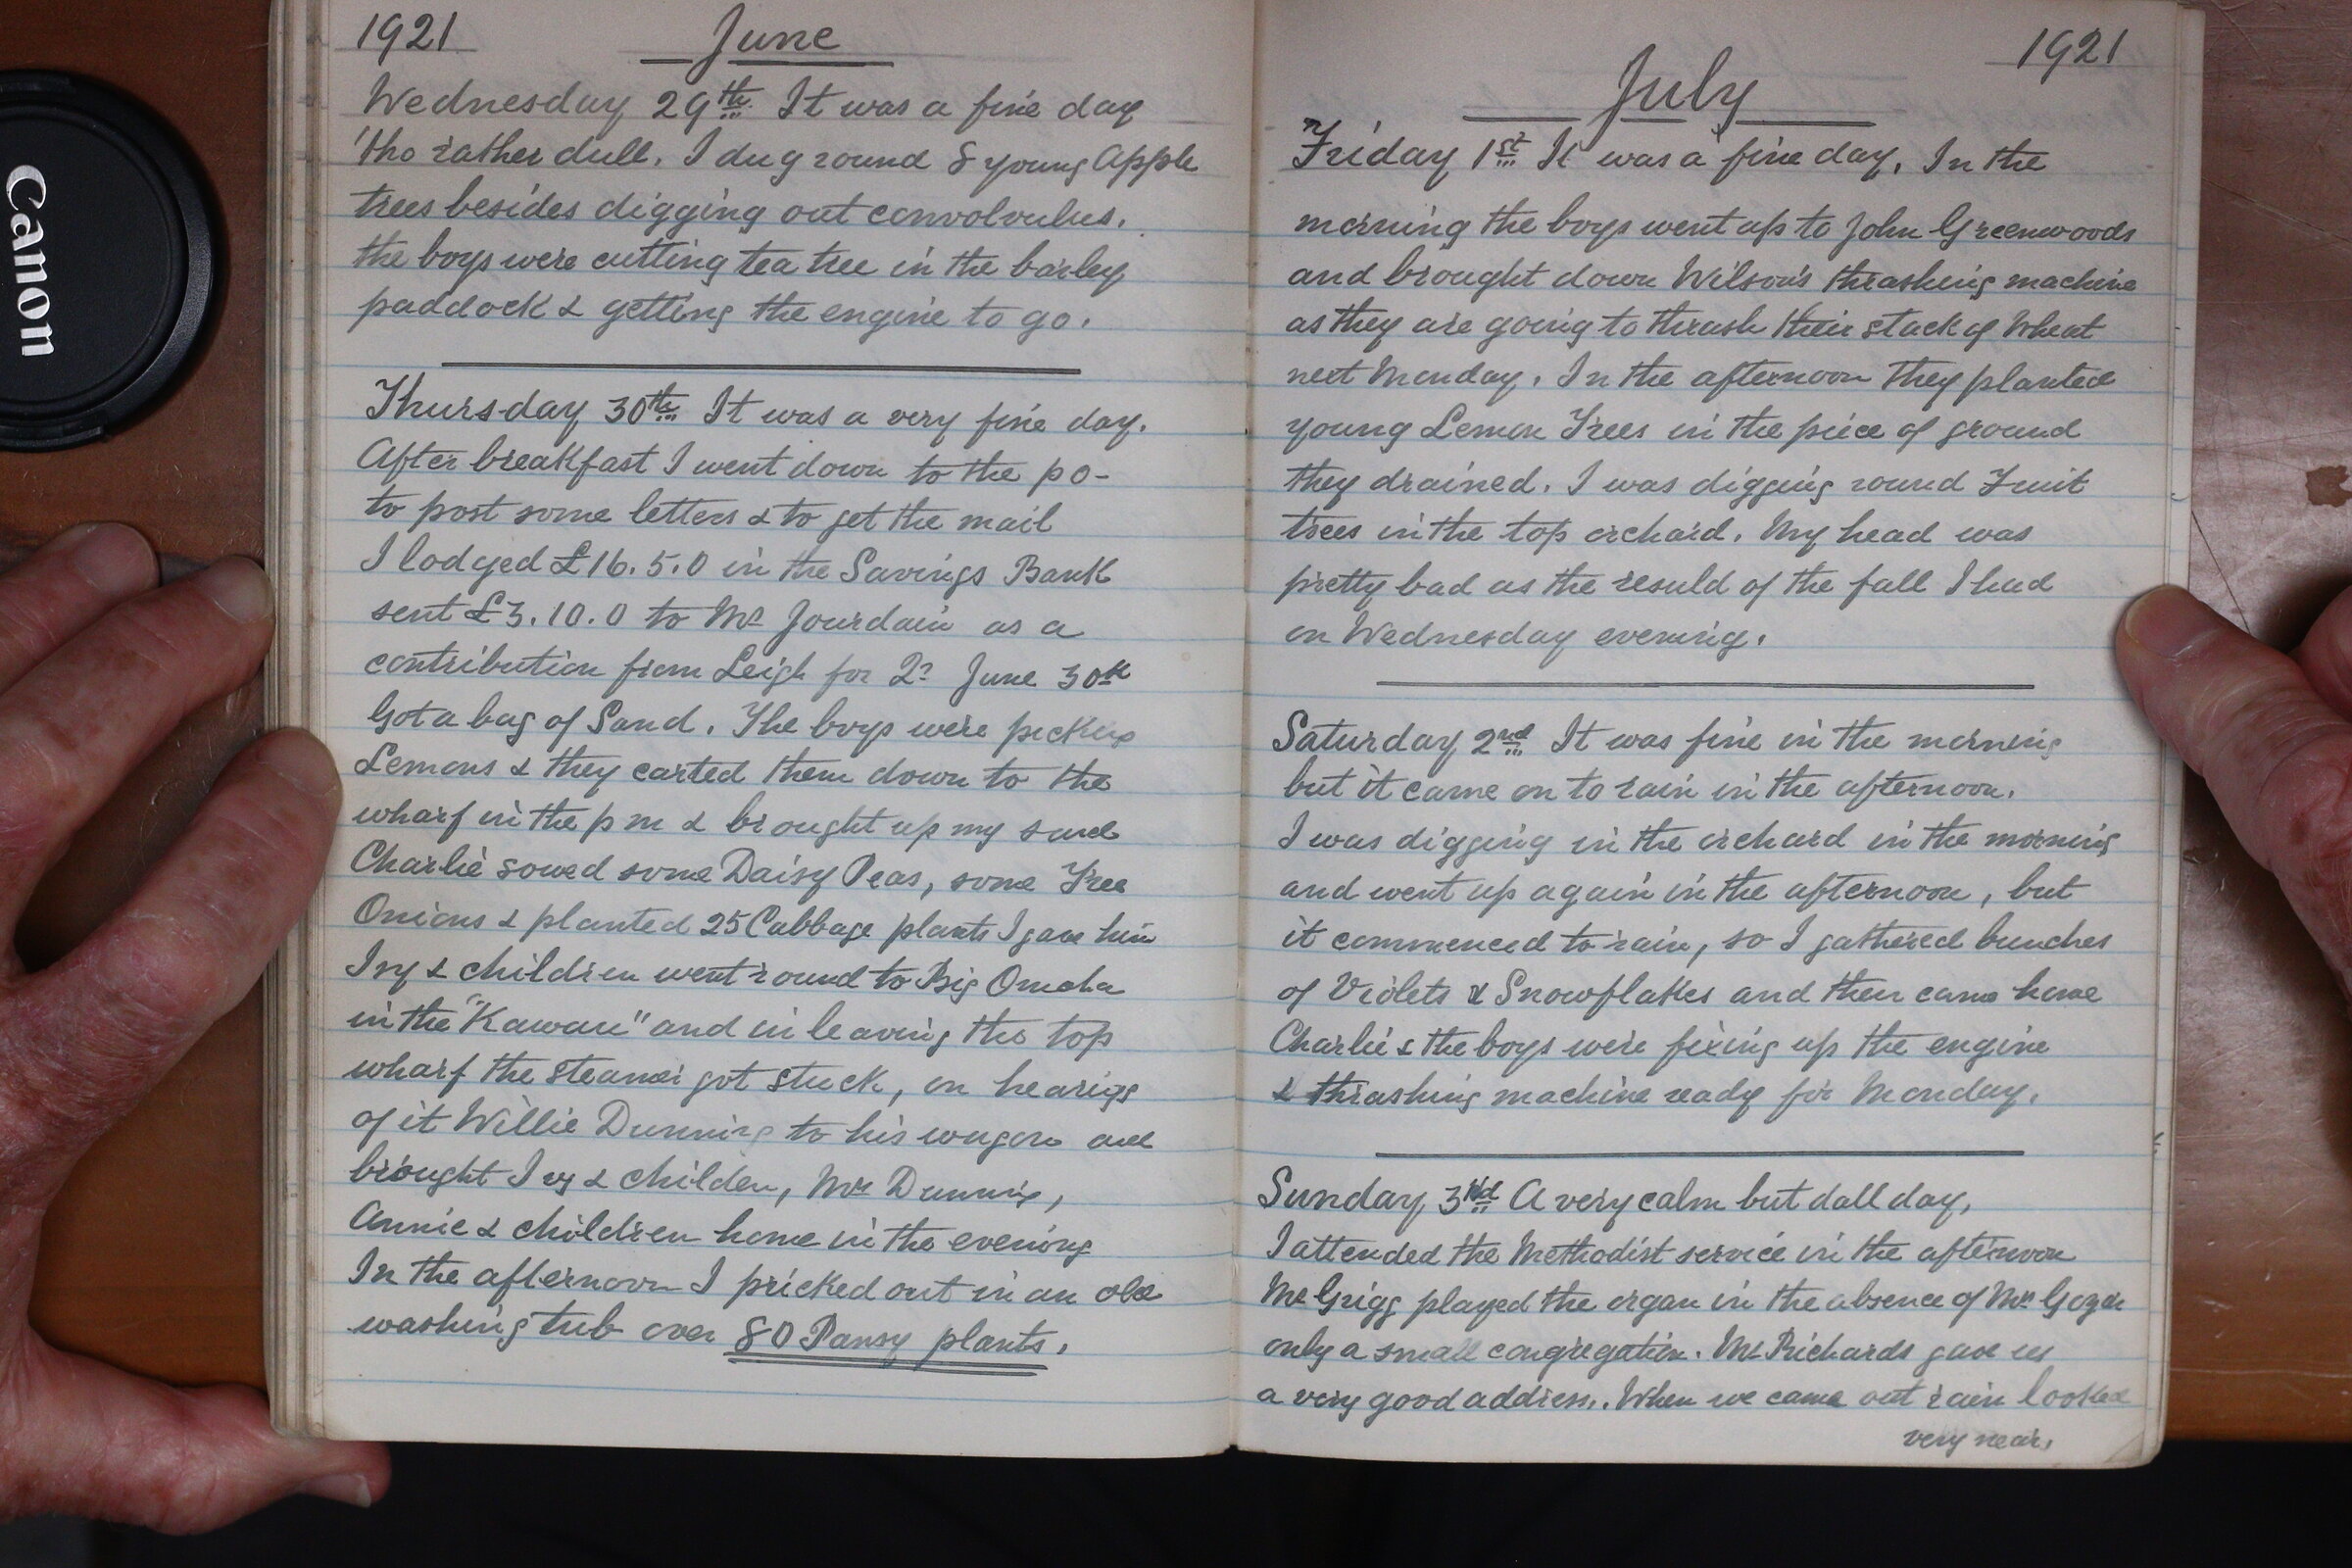 Canon
1921 June
Wednesday 29th It was a fine day
'tho rather dull. I dug round 8 young Apple
trees besides digging out convolvulus.
the boys were cutting tea tree in the barley
paddock & getting the engine to go.
Thursday 30th It was a very fine day.
After breakfast I went down to the po-
to post some letters & to get the mail
I lodged £16.5.0 in the Savings Bank
sent £3.10.0 to Mr Jourdain as a
contribution from Leigh for Qr June 30th
Got a bag of Sand. The boys were picking
Lemons & they carted them down to the
wharf in the p m & brought up my sand
Charlie sowed some Daisy Peas, some Tree
Onions & planted 25 Cabbage plants I gave him
Ivy & children went round to Big Omaha
in the "Kawau" and in leaving the top
wharf the steamer got stuck, on hearing
of it Willie Dunning to his wagon and
brought Ivy & childen, Mrs Dunning,
Annie & children home in the evening
In the afternoon I pricked out in an old
washing tub over 80 Pansy plants.
1921
July
Friday 1st It was a fine day. In the
morning the boys went up to John Greenwoods
and brought down Wilson's thrashing machine
as they are going to thrash their stack of Wheat
next Monday. In the afternoon they planted
young Lemon Trees in the piece of ground
they drained. I was digging round Fruit
trees in the top orchard. My head was
pretty bad as the resuld of the fall I had
on Wednesday evening.
Saturday 2nd It was fine in the morning
but it came on to rain in the afternoon.
I was digging in the orchard in the morning
and went up again in the afternoon, but
it commenced to rain, so I gathered bunches
of Violets & Snowflakes and then came home
Charlie & the boys were fixing up the engine
& thrashing machine ready for Monday.
Sunday 3rd A very calm but dull day,
I attended the Methodist service in the afternoon
Mr Grigg played the organ in the absence of Mrs
only a small congregation. Mr Richards gave us
a very good address. When we came out rain looked
very near.